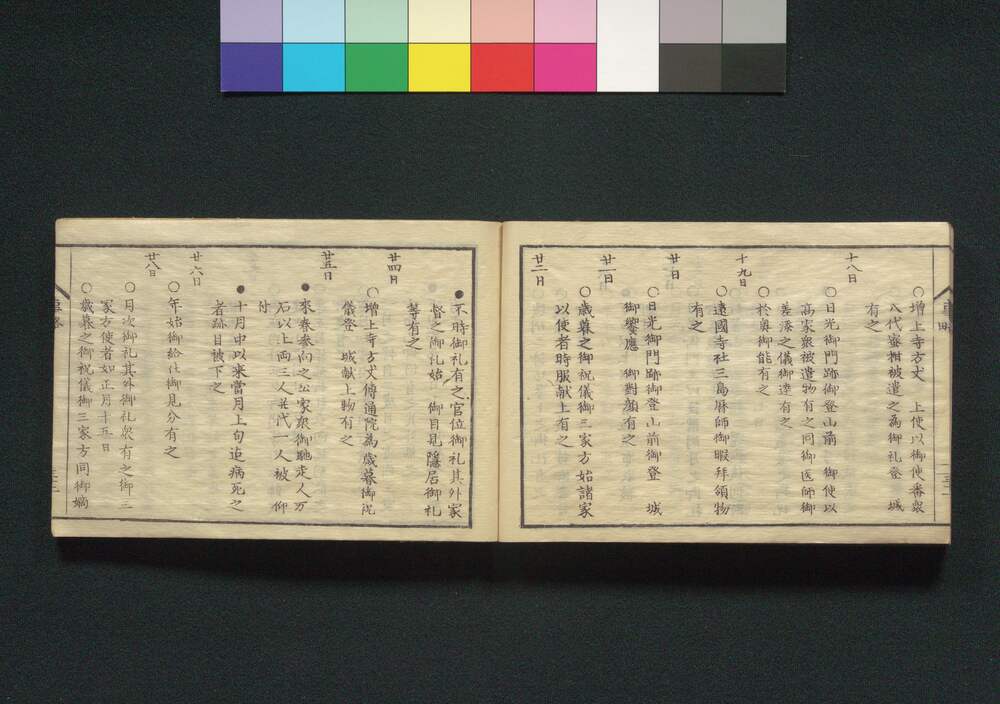 ○増上寺方丈　上使以御使番衆
八代蜜柑被遣之為御礼登　城
有之
十八日
○日光御門跡御登山前　御使以
高家衆被遣物有之同御医師御
差添之儀御達有之
○於奥御能有之
十九日
○遠國寺社三島暦師御暇拜領物
有之
廿日
○日光御門跡御登山前御登　城
御饗應　御對顔有之
廿一日
○歳暮之御祝儀御三家方始諸家
以使者時服献上有之
廿二日
●不時御礼有之官位御礼其外家
督之御礼始　御目見隠居御礼
等有之
廿四日
○増上寺方丈傳通院為歳暮御祝
儀登　城献上物有之
廿五日
●來春参向之公家衆御馳走人万
石以上両三人交代一人被　仰
付
●十月中以来當月上旬迄病死之
者跡目被下之
廿六日
○年始御給仕御見分有之
廿八日
○月次御礼其外御礼衆有之御三
家方使者如正月十五日
○歳暮之御祝儀御三家方同御嫡